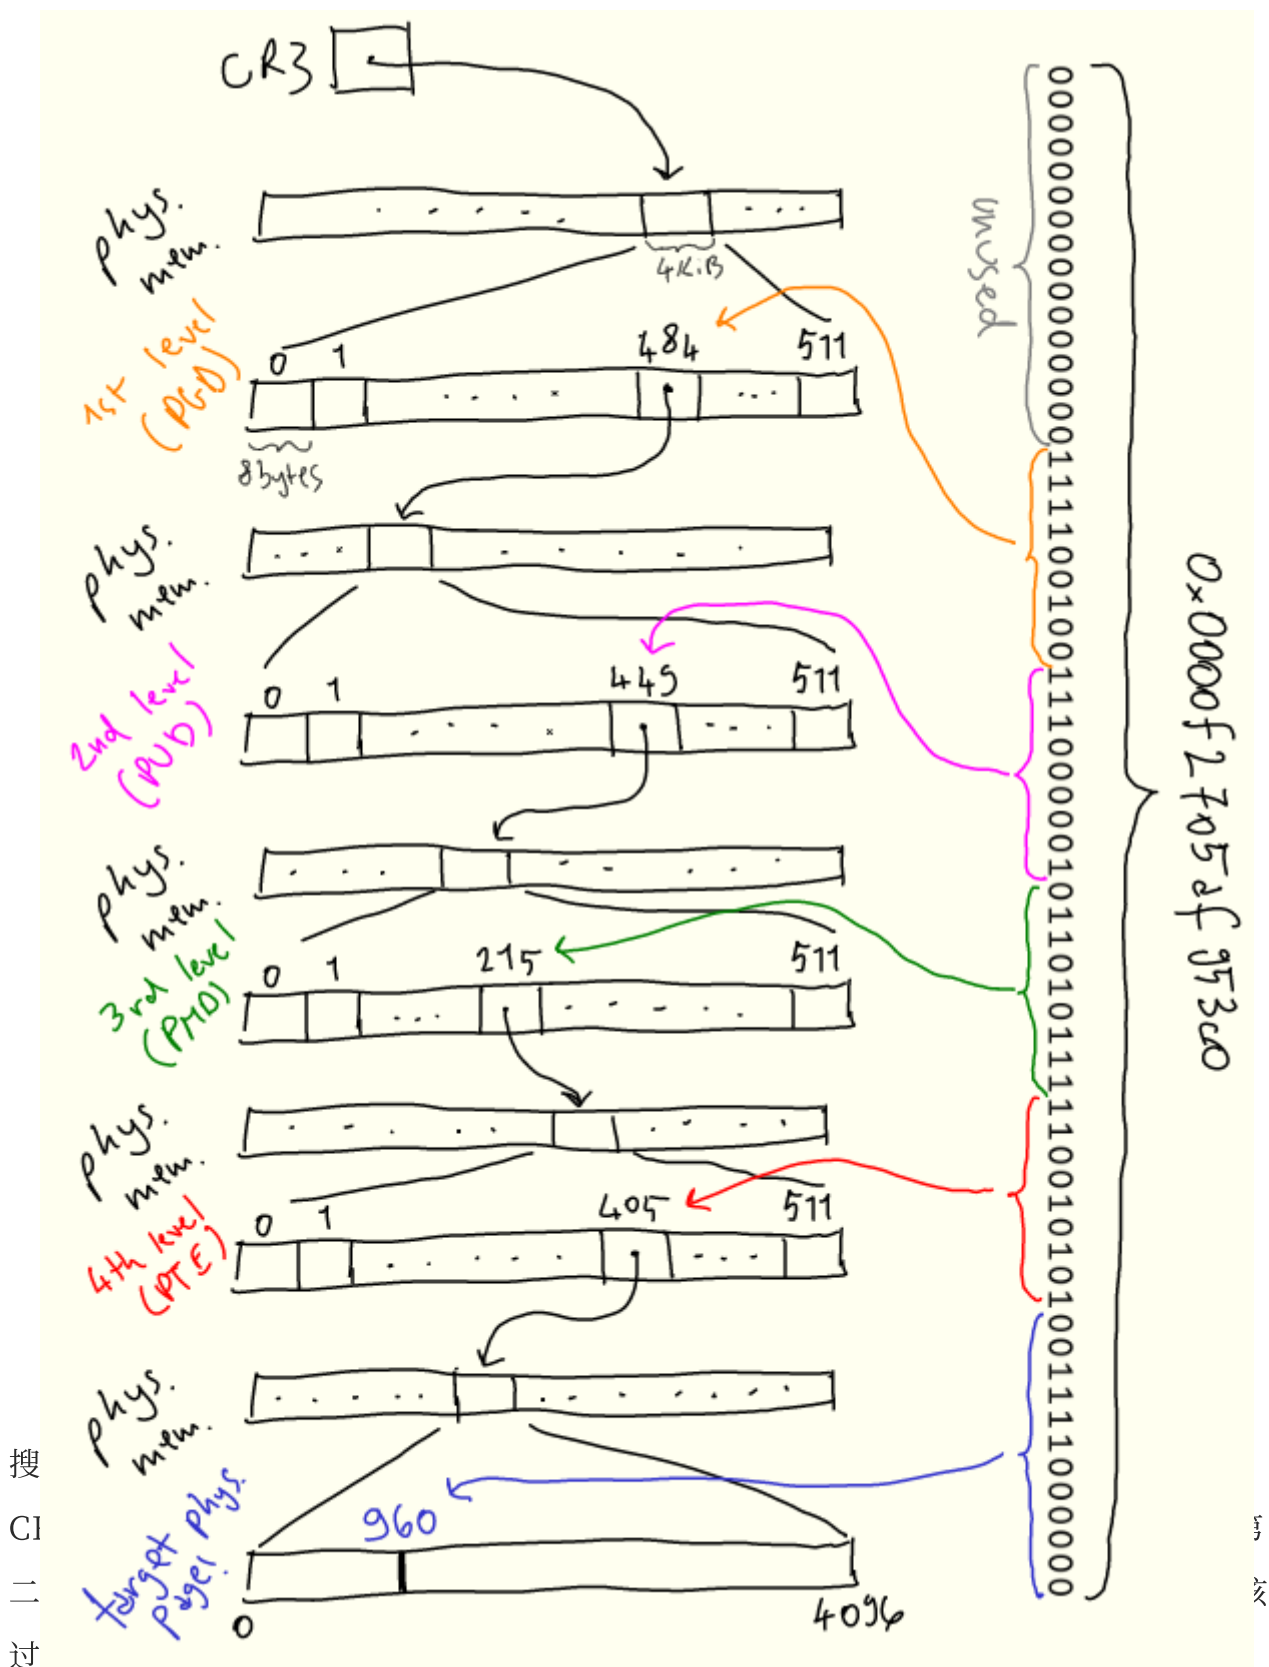 CR3
phys.
mem.
4KiB
1st level
(PGD)
0 1 484 511
8bytes
phys.
mem.
2nd level
(PUD)
0 1 449 511
phys.
mem.
3rd level
(PMD)
0 1 215 511
phys.
mem.
4th level
(PTE)
0 1 405 511
phys.
mem.
target phys.
page!
960
0 4096
unused
0000000000000000111100100111000001011010111110010101001111000000
0x0000f2705af953c0
搜
二
过